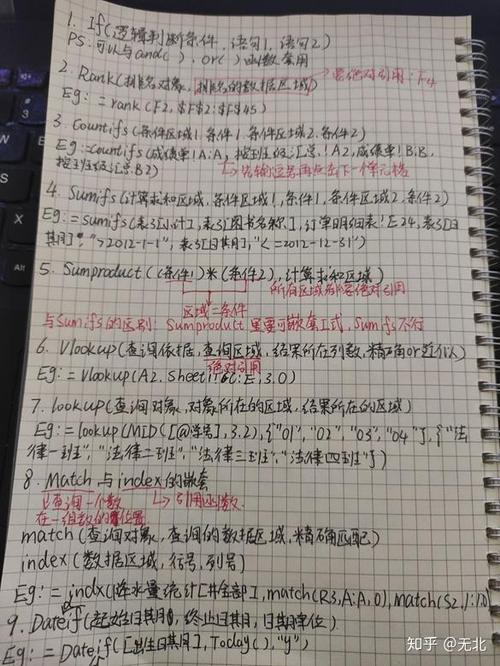 1. If(逻辑判断条件, 语句1, 语句2)
PS:可以与and( ), or( )函数套用
2. Rank(排名对象, 排名的数据区域) 要绝对引用:F4
Eg: =rank(F2, $F$2:$F$45)
3. Countifs(条件区域1, 条件1, 条件区域2, 条件2)
Eg:=countifs(成绩单!A:A, 按班级汇总!A2, 成绩单!B:B,
按班级汇总!B2) 先输逗号再点击下一个单元格
4. Sumifs(计算求和区域, 条件区域1, 条件1, 条件区域2, 条件2)
Eg:=sumifs(表3[小计], 表3[图书名称], 订单明细表!E24, 表3[日
期], ">2012-1-1", 表3[日期], "<=2012-12-31")
5. Sumproduct((条件1)*(条件2), 计算求和区域)
区域=条件 所有区域都要绝对引用
与Sumifs的区别: Sumproduct里面可嵌套公式, Sumifs不行
6. Vlookup(查询依据, 查询区域, 结果所在列数, 精确or近似)
绝对引用
Eg: =Vlookup(A2, Sheet1!C:E, 3, 0)
7. lookup(查询对象, 对象所在的区域, 结果所在的区域)
Eg: =lookup(MID([@学号], 3, 2), {"01", "02", "03", "04"}, {"法
律一班", "法律二班", "法律三班", "法律四班"})
8. Match与index的嵌套
查询一个数 引用函数
在一组数的位置
match(查询对象, 查询的数据区域, 精确匹配)
index(数据区域, 行号, 列号)
Eg: =indx(降水量统计[#全部], match(R3, A:A, 0), match(S2, 1:1,0)
9. Dateif(起始日期, 终止日期, 日期单位)
Eg: =Dateif([出生日期], Today(), "y")
知乎 @无北